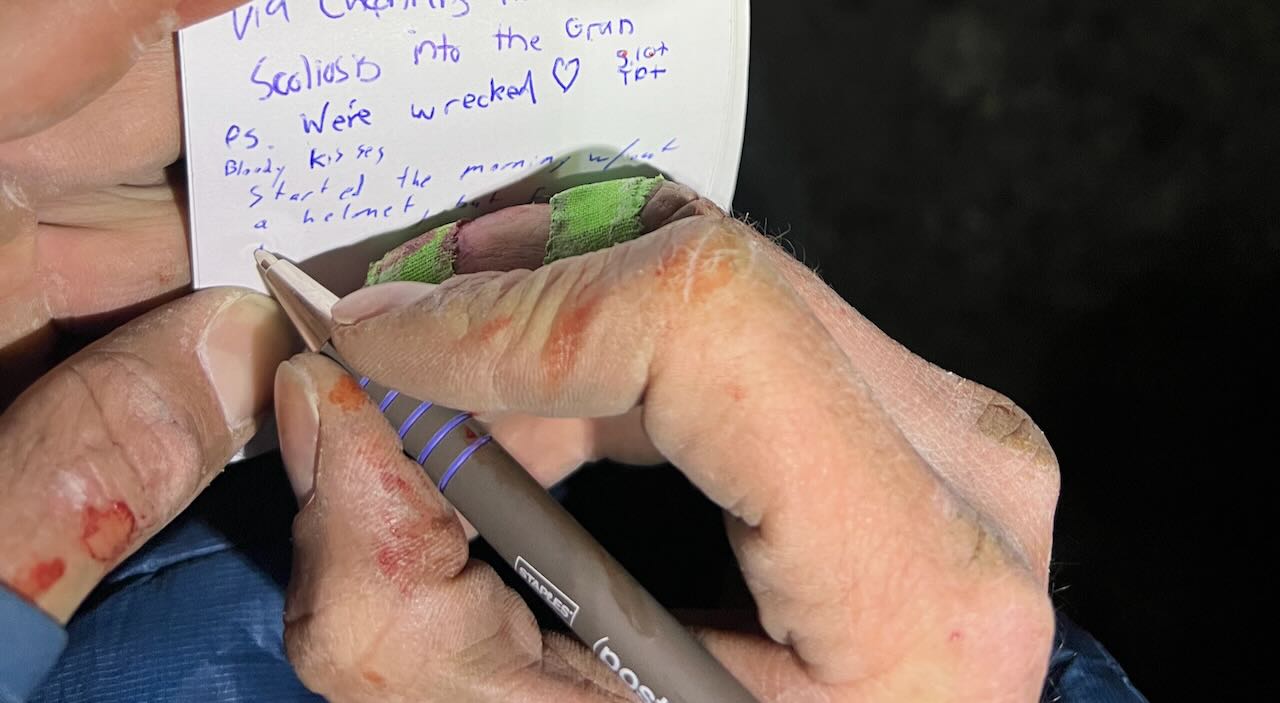 via
Scoliosis into the Gran
ps. We're wrecked ♡ 9.10+
TR+
Bloody kisses
Started the morning w/out
a helmet, but
STAPLES
(post